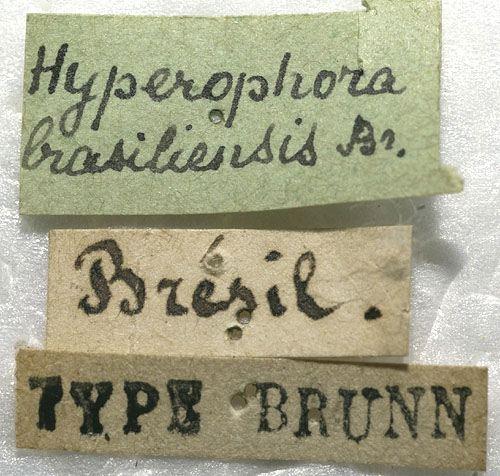 Hyperophora
brasiliensis Br.
Brésil.
TYPE BRUNN